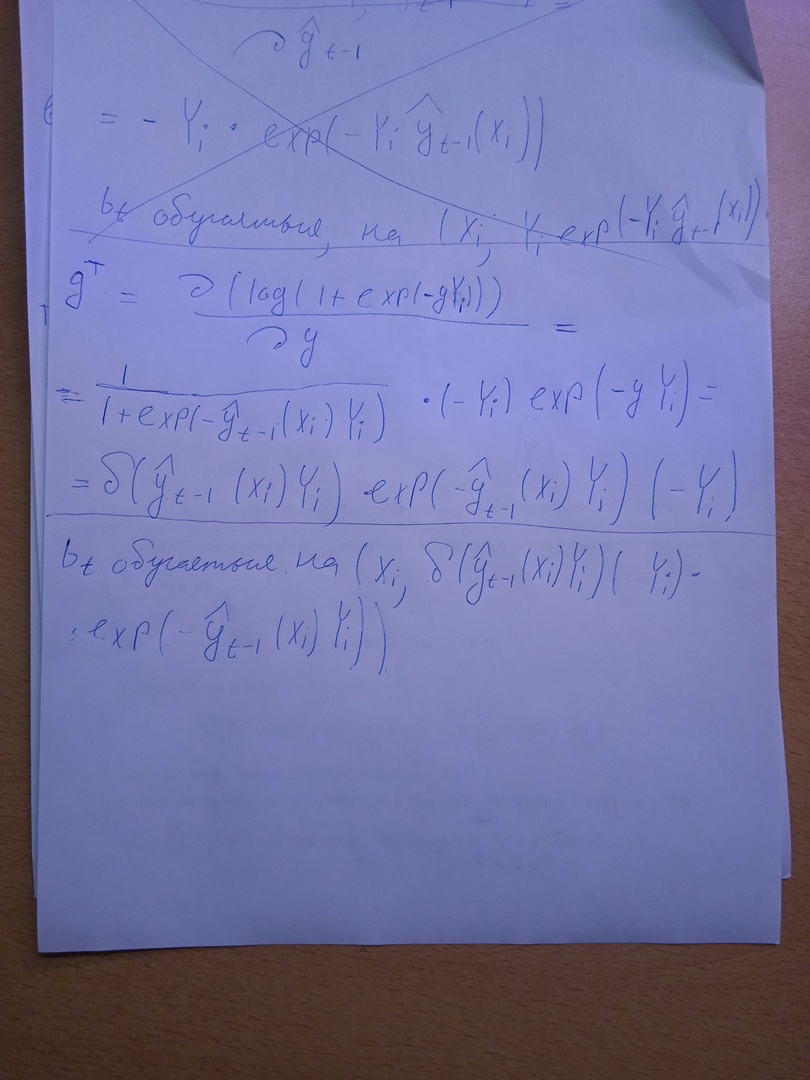 ∂ ŷ t-1
= - Yi · exp(- Yi ŷ t-1(xi))
bt обучаться, на (xi, Yi exp(-Yi ŷt-1(xi))
g^T = ∂(log(1 + exp(-yYi)))
∂y =
= 1 / (1+exp(-ŷt-1(xi) Yi)) · (-Yi) exp(-y Yi) =
= δ(ŷt-1 (xi) Yi) · exp(-ŷt-1 (xi) Yi) (-Yi)
bt обучается на (xi, δ(ŷt-1(xi)Yi)(-Yi) ·
· exp(-ŷt-1 (xi) Yi))